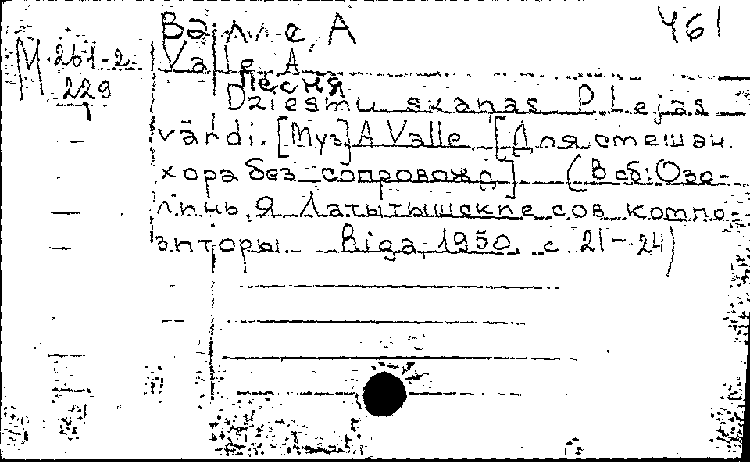 Валле, А 461
М 261-2 Valle A.
229 Песня
Dziesmu skaņas P. Lejas
vārdi. [Муз] A Valle [Для смешан.
хора без сопровожд] (В сб: Озо-
линь, Я Латытышские сов компо-
зиторы Riga, 1950, с 21-24)